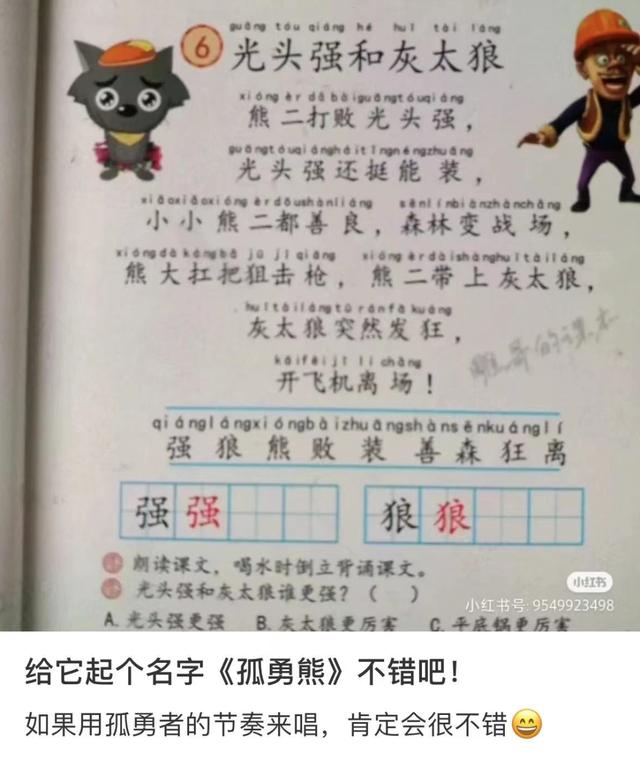 guāng tóu qiáng hé huī tài láng
6 光头强和灰太狼
xióng èr dǎ bài guāng tóu qiáng
熊二打败光头强，
guāng tóu qiáng hái tǐng néng zhuāng
光头强还挺能装，
xiǎo xiǎo xióng èr dōu shàn liáng sēn lín biàn zhàn chǎng
小小熊二都善良，森林变战场，
xióng dà káng bǎ jū jī qiāng xióng èr dài shàng huī tài láng
熊大扛把狙击枪，熊二带上灰太狼，
huī tài láng tū rán fā kuáng
灰太狼突然发狂，
kāi fēi jī lí chǎng
开飞机离场！
qiáng láng xióng bài zhuāng shàn sēn kuáng lí
强 狼 熊 败 装 善 森 狂 离
强 强 狼 狼
朗读课文，喝水时倒立背诵课文。
光头强和灰太狼谁更强？（ ）
A. 光头强更强 B. 灰太狼更厉害 C. 平底锅更厉害
小红书
小红书号: 9549923498
给它起个名字《孤勇熊》不错吧！
如果用孤勇者的节奏来唱，肯定会很不错😄